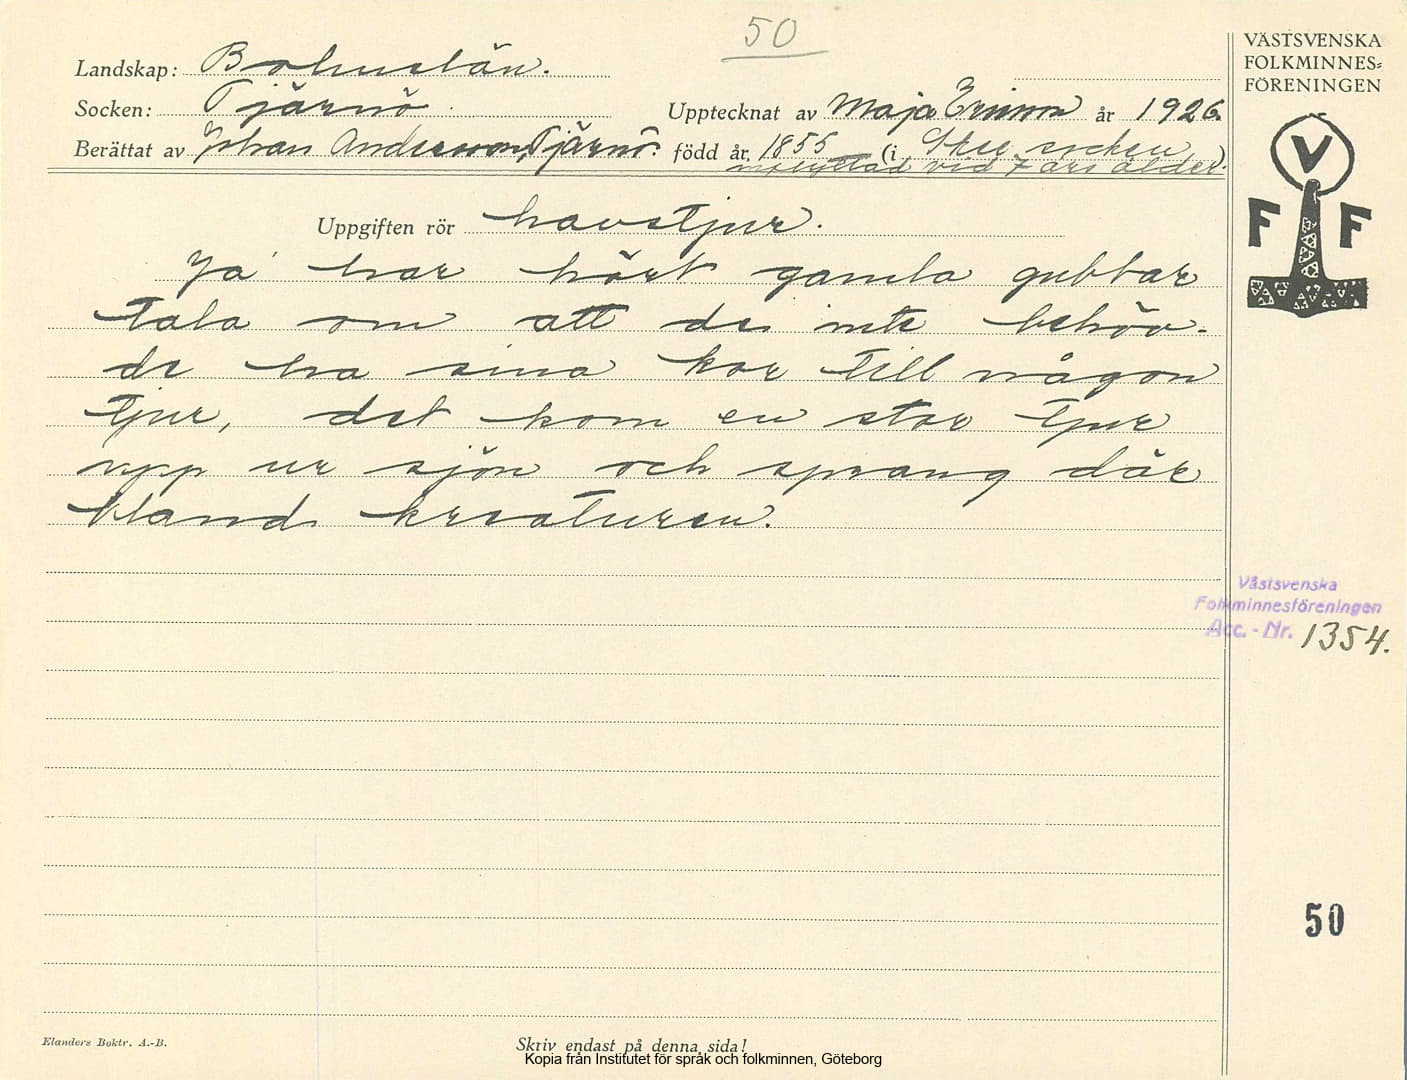 50
VÄSTSVENSKA
FOLKMINNES=
FÖRENINGEN
Landskap: Bohuslän.
Socken: Tjärnö
Upptecknat av Maja Ericson år 1926.
Berättat av Johan Andersson, Tjärnö. född år 1855 (i Skee socken)
inflyttad vid 7 års ålder.
V
F F
Uppgiften rör havstjur.
Ja har hört gamla gubbar
tala om att de inte behöv-
de ha sina kor till någon
tjur, det kom en stor tjur
upp ur sjön och sprang där
bland kreaturen.
Västsvenska
Folkminnesföreningen
Acc. - Nr. 1354.
50
Elanders Boktr. A.-B.
Skriv endast på denna sida!
Kopia från Institutet för språk och folkminnen, Göteborg